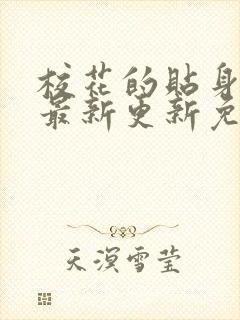 校花的贴身
最新更新免
天溟雪莹